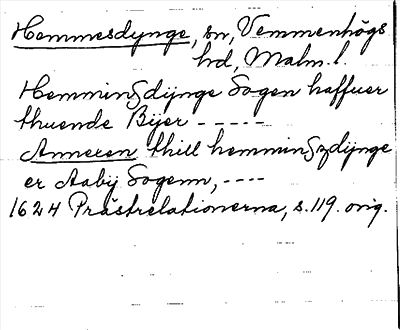 Hemmesdynge, sn, Vemmenhögs
hd, Malm. l.
Hemmingzdÿnge Sogen haffuer
thuende Bÿer -----
Anneren thill hemmingzdÿnge
er Aabÿ Sogenn, ----
1624 Prästrelationerna, s. 119. orig.